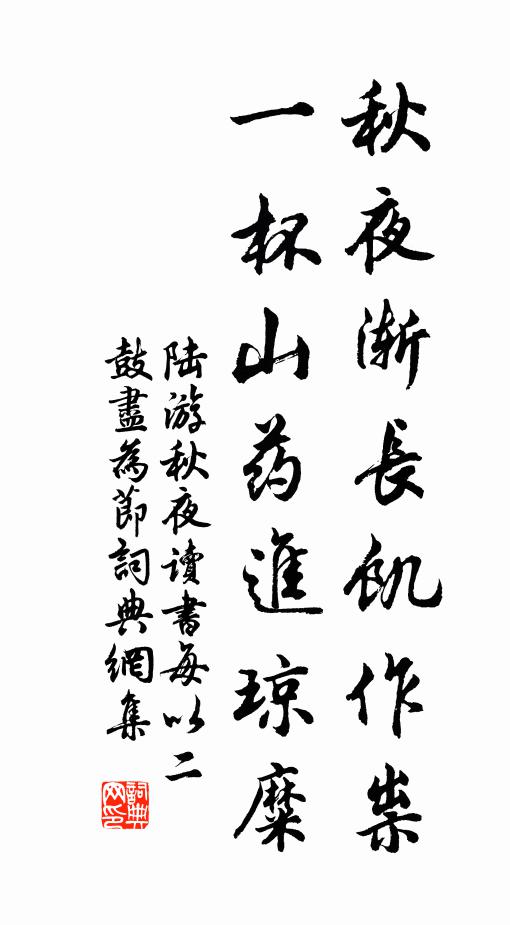 秋夜漸長飢作祟
一杯山药進琼糜
陆游秋夜讀書每以二
鼓盡為節詞典網集
詞典网印